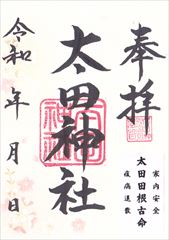 奉拝
家内安全
太田田根古命
疫病退散
太田神社
令和 年 月 日